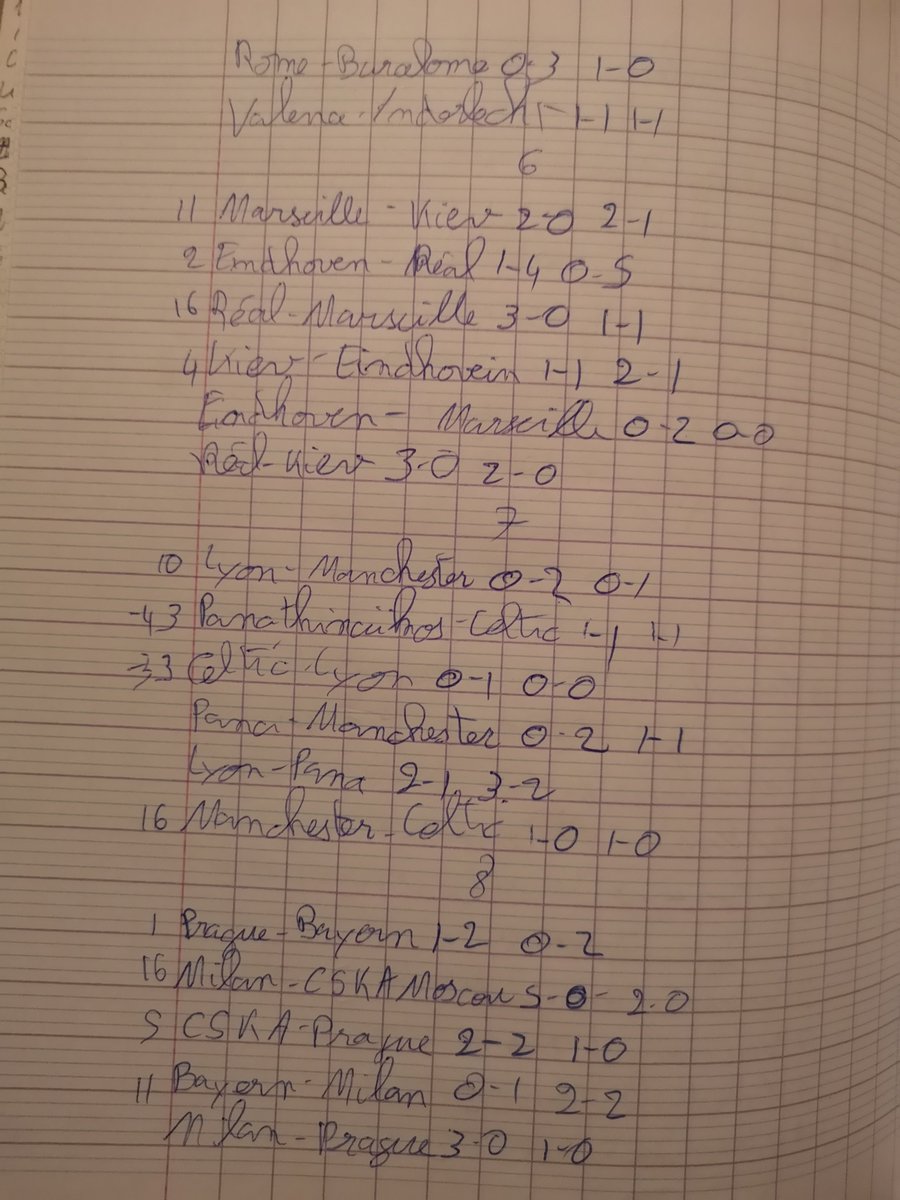 Rome-Barcelome 0-3 1-0
Valena-Inderlecht 1-1 1-1
6
11 Marseille - Kiev 2-0 2-1
2 Eindhoven - Réal 1-4 0-5
16 Réal-Marseille 3-0 1-1
4 Kiev - Eindhovein 1-1 2-1
Eindhoven - Marseille 0-2 0-0
Réal-Kiev 3-0 2-0
7
10 Lyon-Manchester 0-2 0-1
-43 Celtic 1-1 1-1
-33 Celtic-Lyon 0-1 0-0
Pana-Manchester 0-2 1-1
Lyon-Pana 2-1 3-2
16 Manchester-Celtic 1-0 1-0
8
1 Prague-Bayern 1-2 0-2
16 Milan-CSKA Moscou 5-0- 2-0
5 CSKA-Prague 2-2 1-0
11 Bayern-Milan 0-1 2-2
Milan-Prague 3-0 1-0